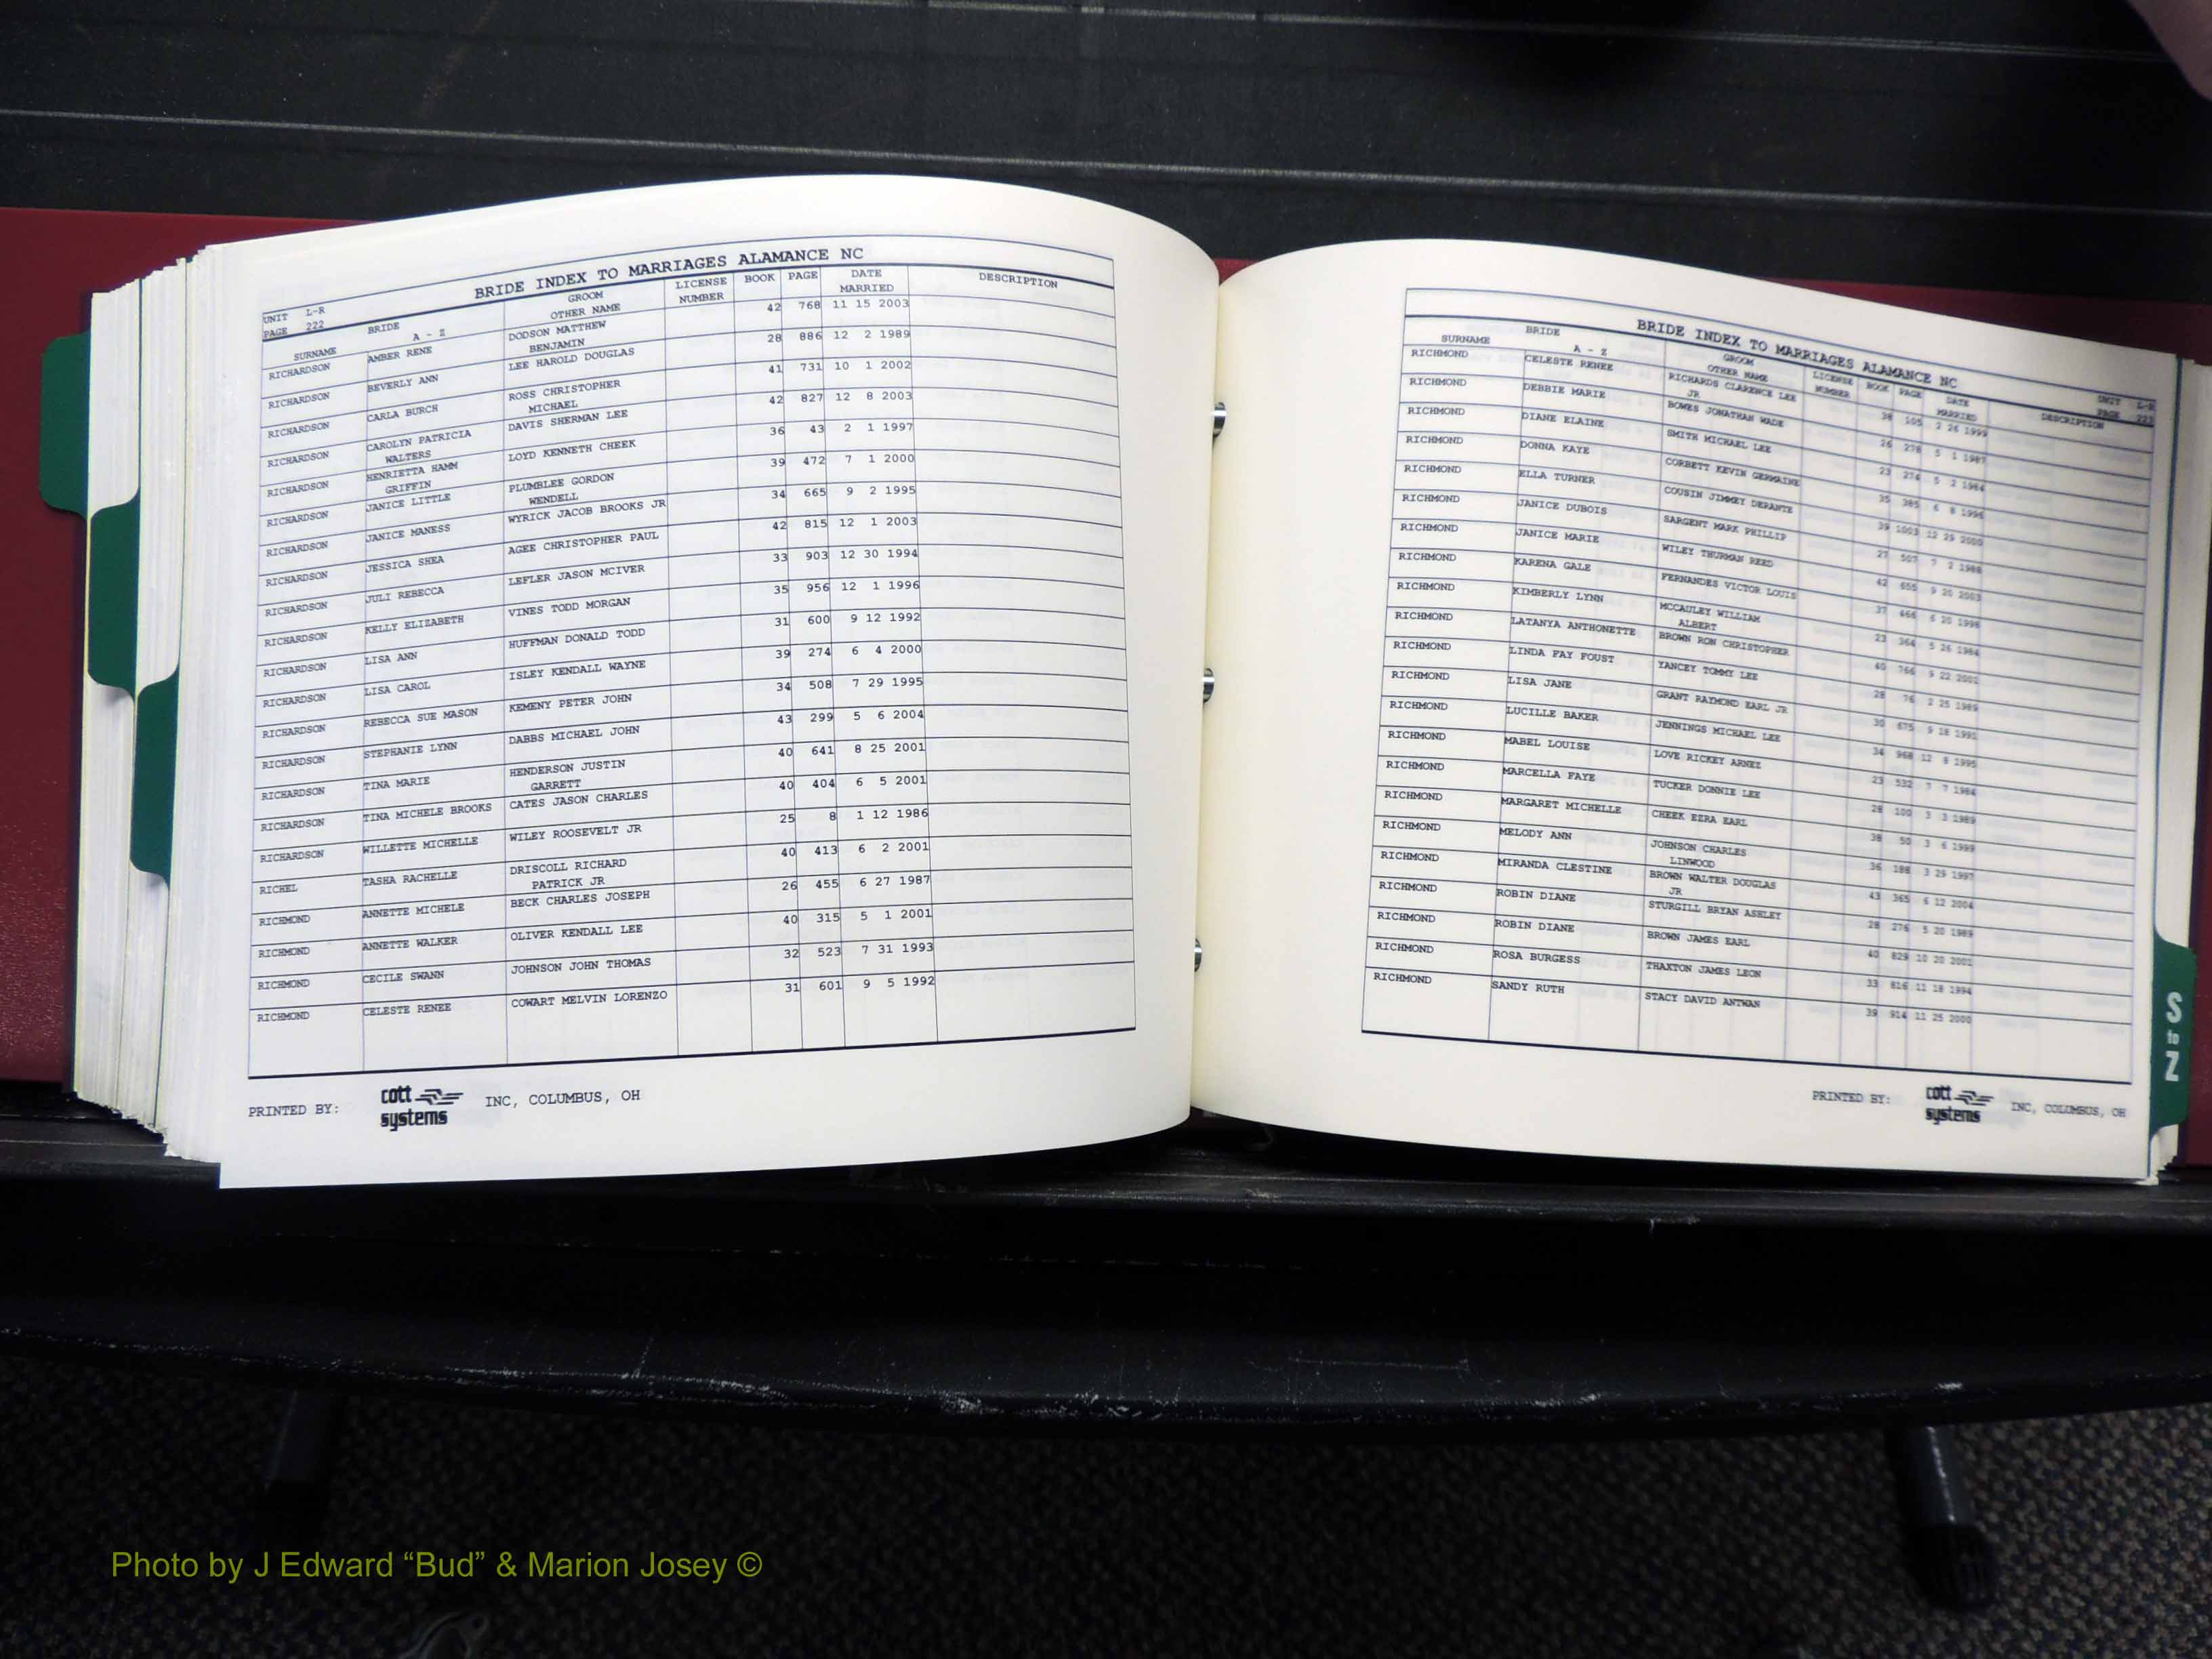 UNIT L-R
PAGE 222
BRIDE INDEX TO MARRIAGES ALAMANCE NC
SURNAME BRIDE A - Z GROOM OTHER NAME LICENSE NUMBER BOOK PAGE DATE MARRIED DESCRIPTION
RICHARDSON AMBER RENE DODSON MATTHEW BENJAMIN 42 768 11 15 2003
RICHARDSON BEVERLY ANN LEE HAROLD DOUGLAS 28 886 12 2 1989
RICHARDSON CARLA BURCH ROSS CHRISTOPHER MICHAEL 41 731 10 1 2002
RICHARDSON CAROLYN PATRICIA WALTERS DAVIS SHERMAN LEE 42 827 12 8 2003
RICHARDSON HENRIETTA HAMM GRIFFIN LOYD KENNETH CHEEK 36 43 2 1 1997
RICHARDSON JANICE LITTLE PLUMBLEE GORDON WENDELL 39 472 7 1 2000
RICHARDSON JANICE MANESS WYRICK JACOB BROOKS JR 34 665 9 2 1995
RICHARDSON JESSICA SHEA AGEE CHRISTOPHER PAUL 42 815 12 1 2003
RICHARDSON JULI REBECCA LEFLER JASON MCIVER 33 903 12 30 1994
RICHARDSON KELLY ELIZABETH VINES TODD MORGAN 35 956 12 1 1996
RICHARDSON LISA ANN HUFFMAN DONALD TODD 31 600 9 12 1992
RICHARDSON LISA CAROL ISLEY KENDALL WAYNE 39 274 6 4 2000
RICHARDSON REBECCA SUE MASON KEMENY PETER JOHN 34 508 7 29 1995
RICHARDSON STEPHANIE LYNN DABBS MICHAEL JOHN 43 299 5 6 2004
RICHARDSON TINA MARIE HENDERSON JUSTIN GARRETT 40 641 8 25 2001
RICHARDSON TINA MICHELE BROOKS CATES JASON CHARLES 40 404 6 5 2001
RICHARDSON WILLETTE MICHELLE WILEY ROOSEVELT JR 25 8 1 12 1986
RICHEL TASHA RACHELLE DRISCOLL RICHARD PATRICK JR 40 413 6 2 2001
RICHMOND ANNETTE MICHELE BECK CHARLES JOSEPH 26 455 6 27 1987
RICHMOND ANNETTE WALKER OLIVER KENDALL LEE 40 315 5 1 2001
RICHMOND CECILE SWANN JOHNSON JOHN THOMAS 32 523 7 31 1993
RICHMOND CELESTE RENEE COWART MELVIN LORENZO 31 601 9 5 1992
PRINTED BY: cott systems INC, COLUMBUS, OH
BRIDE INDEX TO MARRIAGES ALAMANCE NC
UNIT L-R
PAGE 223
SURNAME BRIDE A - Z GROOM OTHER NAME LICENSE NUMBER BOOK PAGE DATE MARRIED DESCRIPTION
RICHMOND CELESTE RENEE RICHARDS CLARENCE LEE JR 38 105 2 26 1999
RICHMOND DEBBIE MARIE BOWES JONATHAN WADE 26 276 5 1 1987
RICHMOND DIANE ELAINE SMITH MICHAEL LEE 23 274 5 2 1984
RICHMOND DONNA KAYE CORBETT KEVIN GERMAINE 35 385 6 8 1996
RICHMOND ELLA TURNER COUSIN JIMMEY DERANTE 39 1003 12 25 2000
RICHMOND JANICE DUBOIS SARGENT MARK PHILLIP 27 507 7 2 1988
RICHMOND JANICE MARIE WILEY THURMAN REED 42 655 9 20 2003
RICHMOND KARENA GALE FERNANDES VICTOR LOUIS 37 466 6 20 1998
RICHMOND KIMBERLY LYNN MCCAULEY WILLIAM ALBERT 23 364 5 26 1984
RICHMOND LATANYA ANTHONETTE BROWN RON CHRISTOPHER 40 766 9 22 2001
RICHMOND LINDA FAY FOUST YANCEY TOMMY LEE 28 76 2 25 1989
RICHMOND LISA JANE GRANT RAYMOND EARL JR 30 675 9 18 1991
RICHMOND LUCILLE BAKER JENNINGS MICHAEL LEE 34 968 12 8 1995
RICHMOND MABEL LOUISE LOVE RICKEY ARNEZ 23 532 7 7 1984
RICHMOND MARCELLA FAYE TUCKER DONNIE LEE 28 100 3 3 1989
RICHMOND MARGARET MICHELLE CHEEK EZRA EARL 38 50 3 6 1999
RICHMOND MELODY ANN JOHNSON CHARLES LINWOOD 36 188 3 29 1997
RICHMOND MIRANDA CLESTINE BROWN WALTER DOUGLAS JR 43 365 6 12 2004
RICHMOND ROBIN DIANE STURGILL BRYAN ASHLEY 28 276 5 20 1989
RICHMOND ROBIN DIANE BROWN JAMES EARL 40 829 10 20 2001
RICHMOND ROSA BURGESS THAXTON JAMES LEON 33 816 11 18 1994
RICHMOND SANDY RUTH STACY DAVID ANTWAN 39 914 11 25 2000
PRINTED BY: cott systems INC, COLUMBUS, OH
S to Z
Photo by J Edward “Bud” & Marion Josey ©